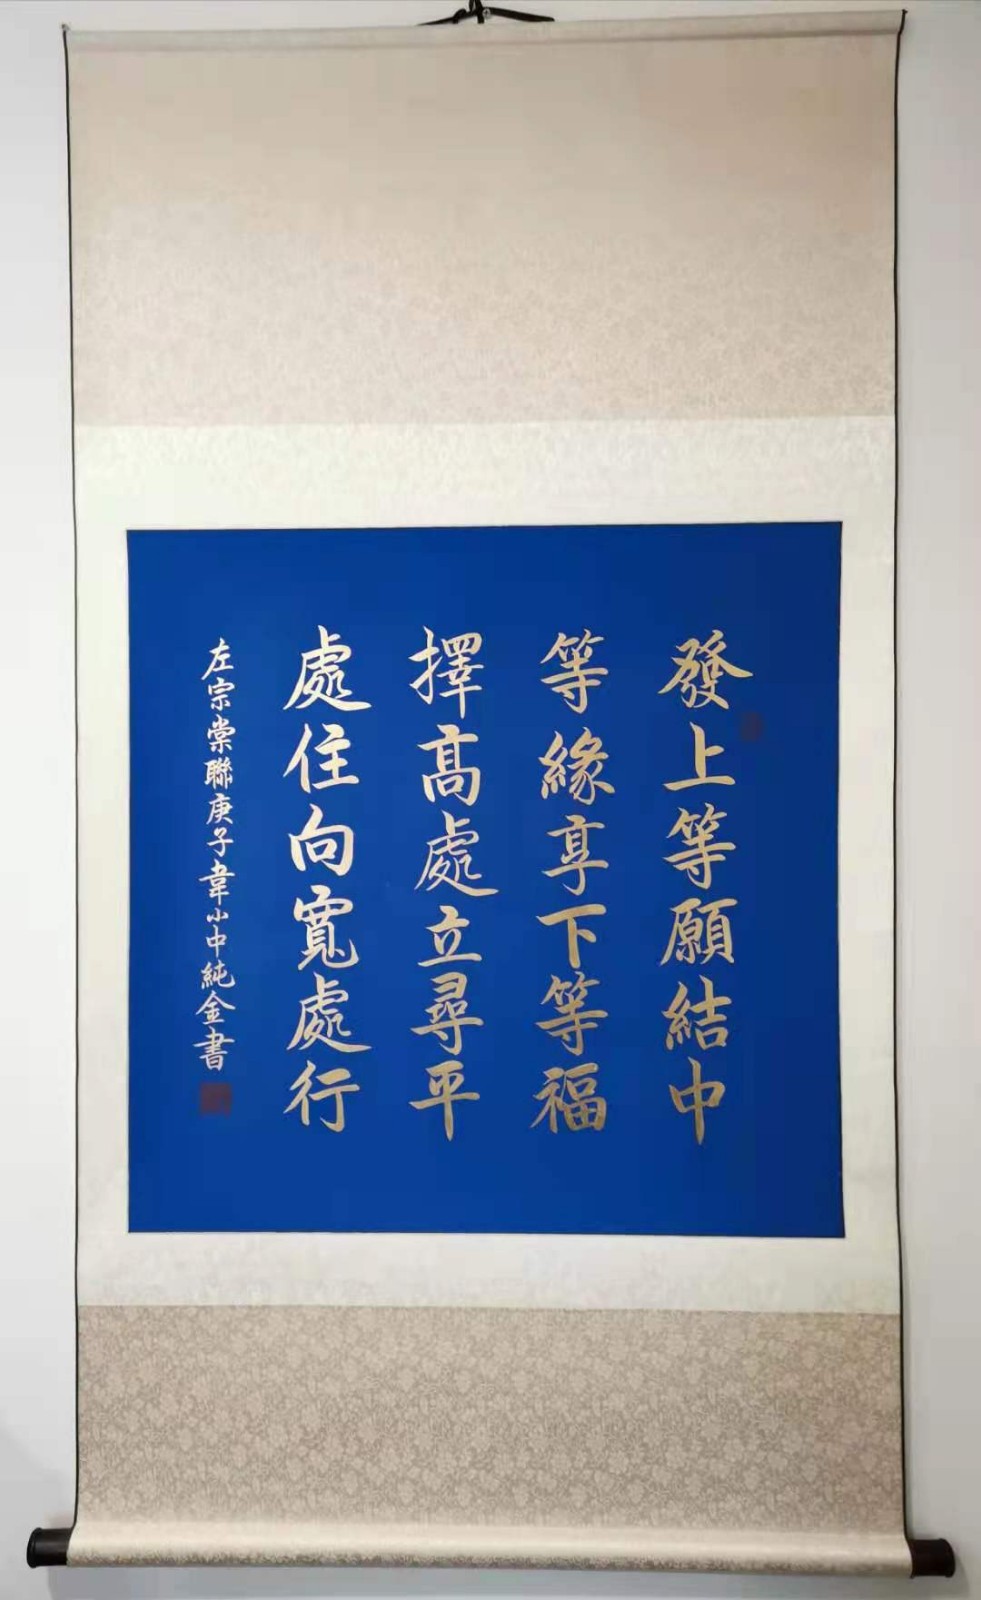 發上等願結中
等緣享下等福
擇高處立尋平
處住向寬處行
左宗棠聯庚子韋小中純金書